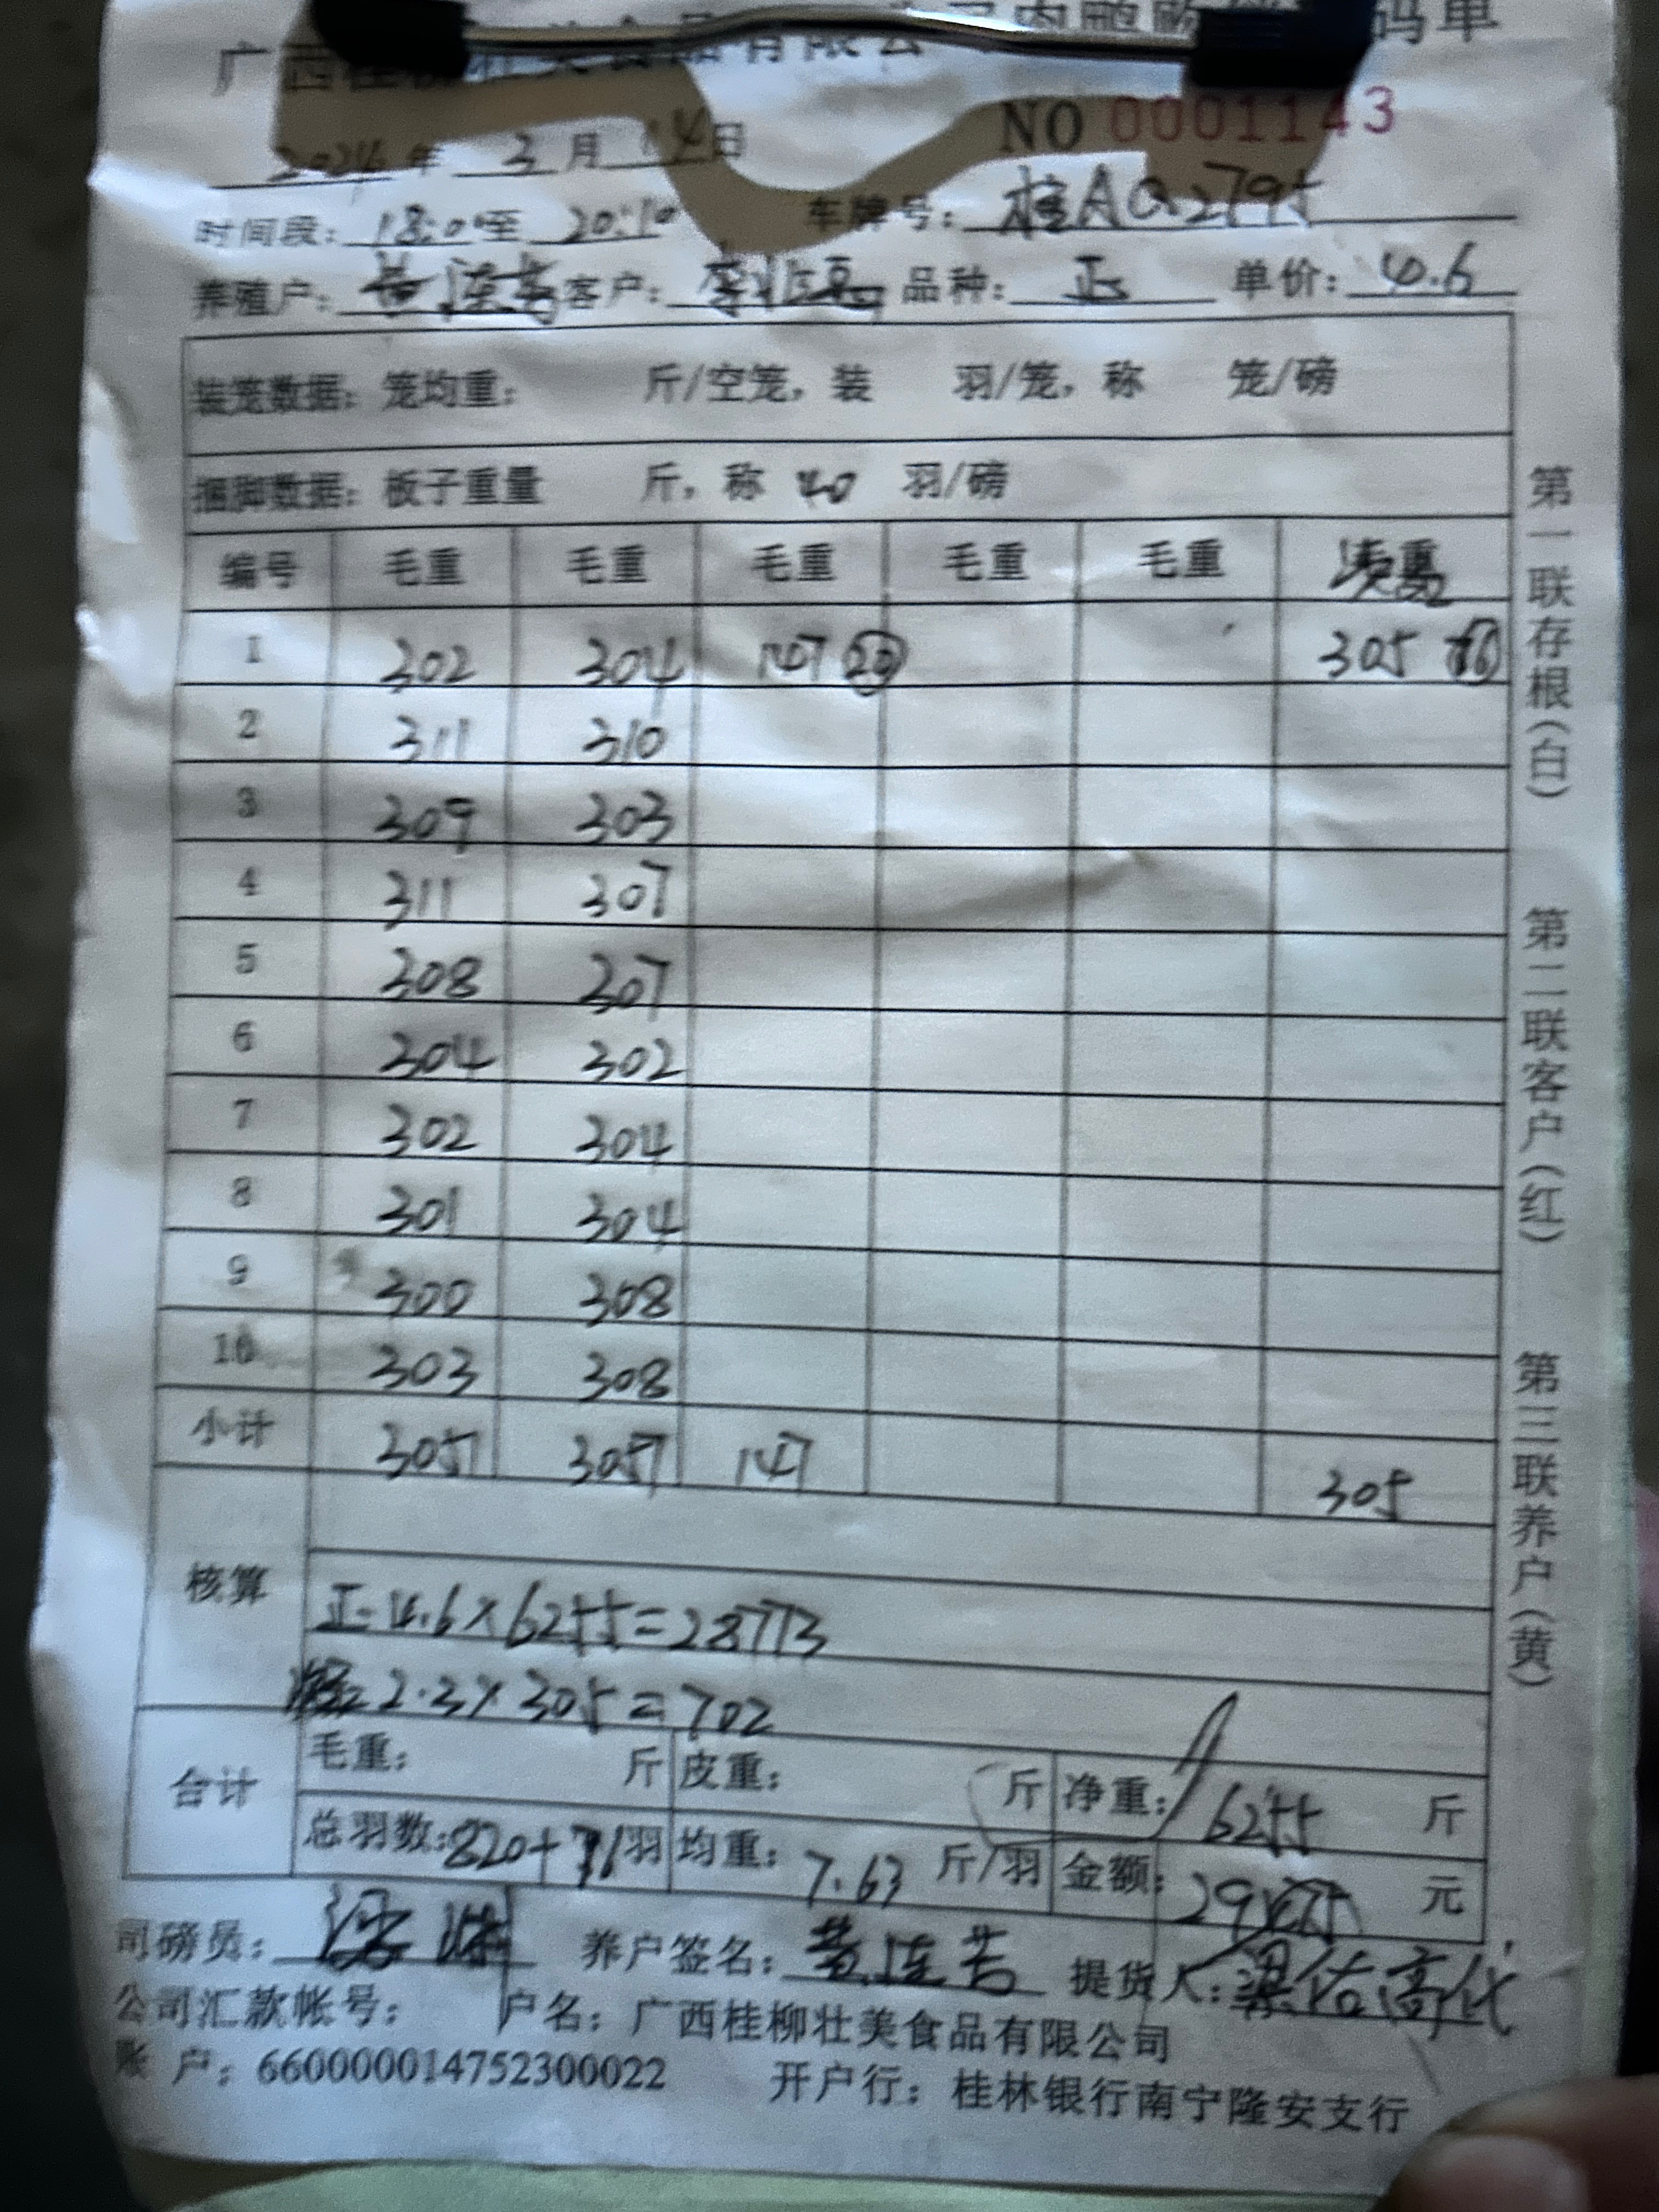 肉鸭购销 码单
广西桂柳壮美食品有限公
NO 0001143
2024年 3月 14日
时间段: 18:00至 20:10 车牌号: 桂AQ2795
养殖户: 黄连芳 客户: 品种: 正 单价: 4.6
装笼数据: 笼均重: 斤/空笼, 装 羽/笼, 称 笼/磅
捆脚数据: 板子重量 斤, 称 40 羽/磅
编号 毛重 毛重 毛重 毛重 毛重
1 302 304 147 20 305
2 311 310
3 309 303
4 311 307
5 308 307
6 304 302
7 302 304
8 301 304
9 300 308
10 303 308
小计 3051 3057 147 305
核算
正=4.6×6255=28773
2.3×305=702
合计 毛重: 斤 皮重: 斤 净重: 6255 斤
总羽数:820+ 羽 均重: 7.63 斤/羽 金额: 29475 元
司磅员: 养户签名: 黄连芳 提货人: 梁佑高代
公司汇款帐号: 户名: 广西桂柳壮美食品有限公司
账 户: 660000014752300022 开户行: 桂林银行南宁隆安支行
第一联存根(白) 第二联客户(红) 第三联养户(黄)